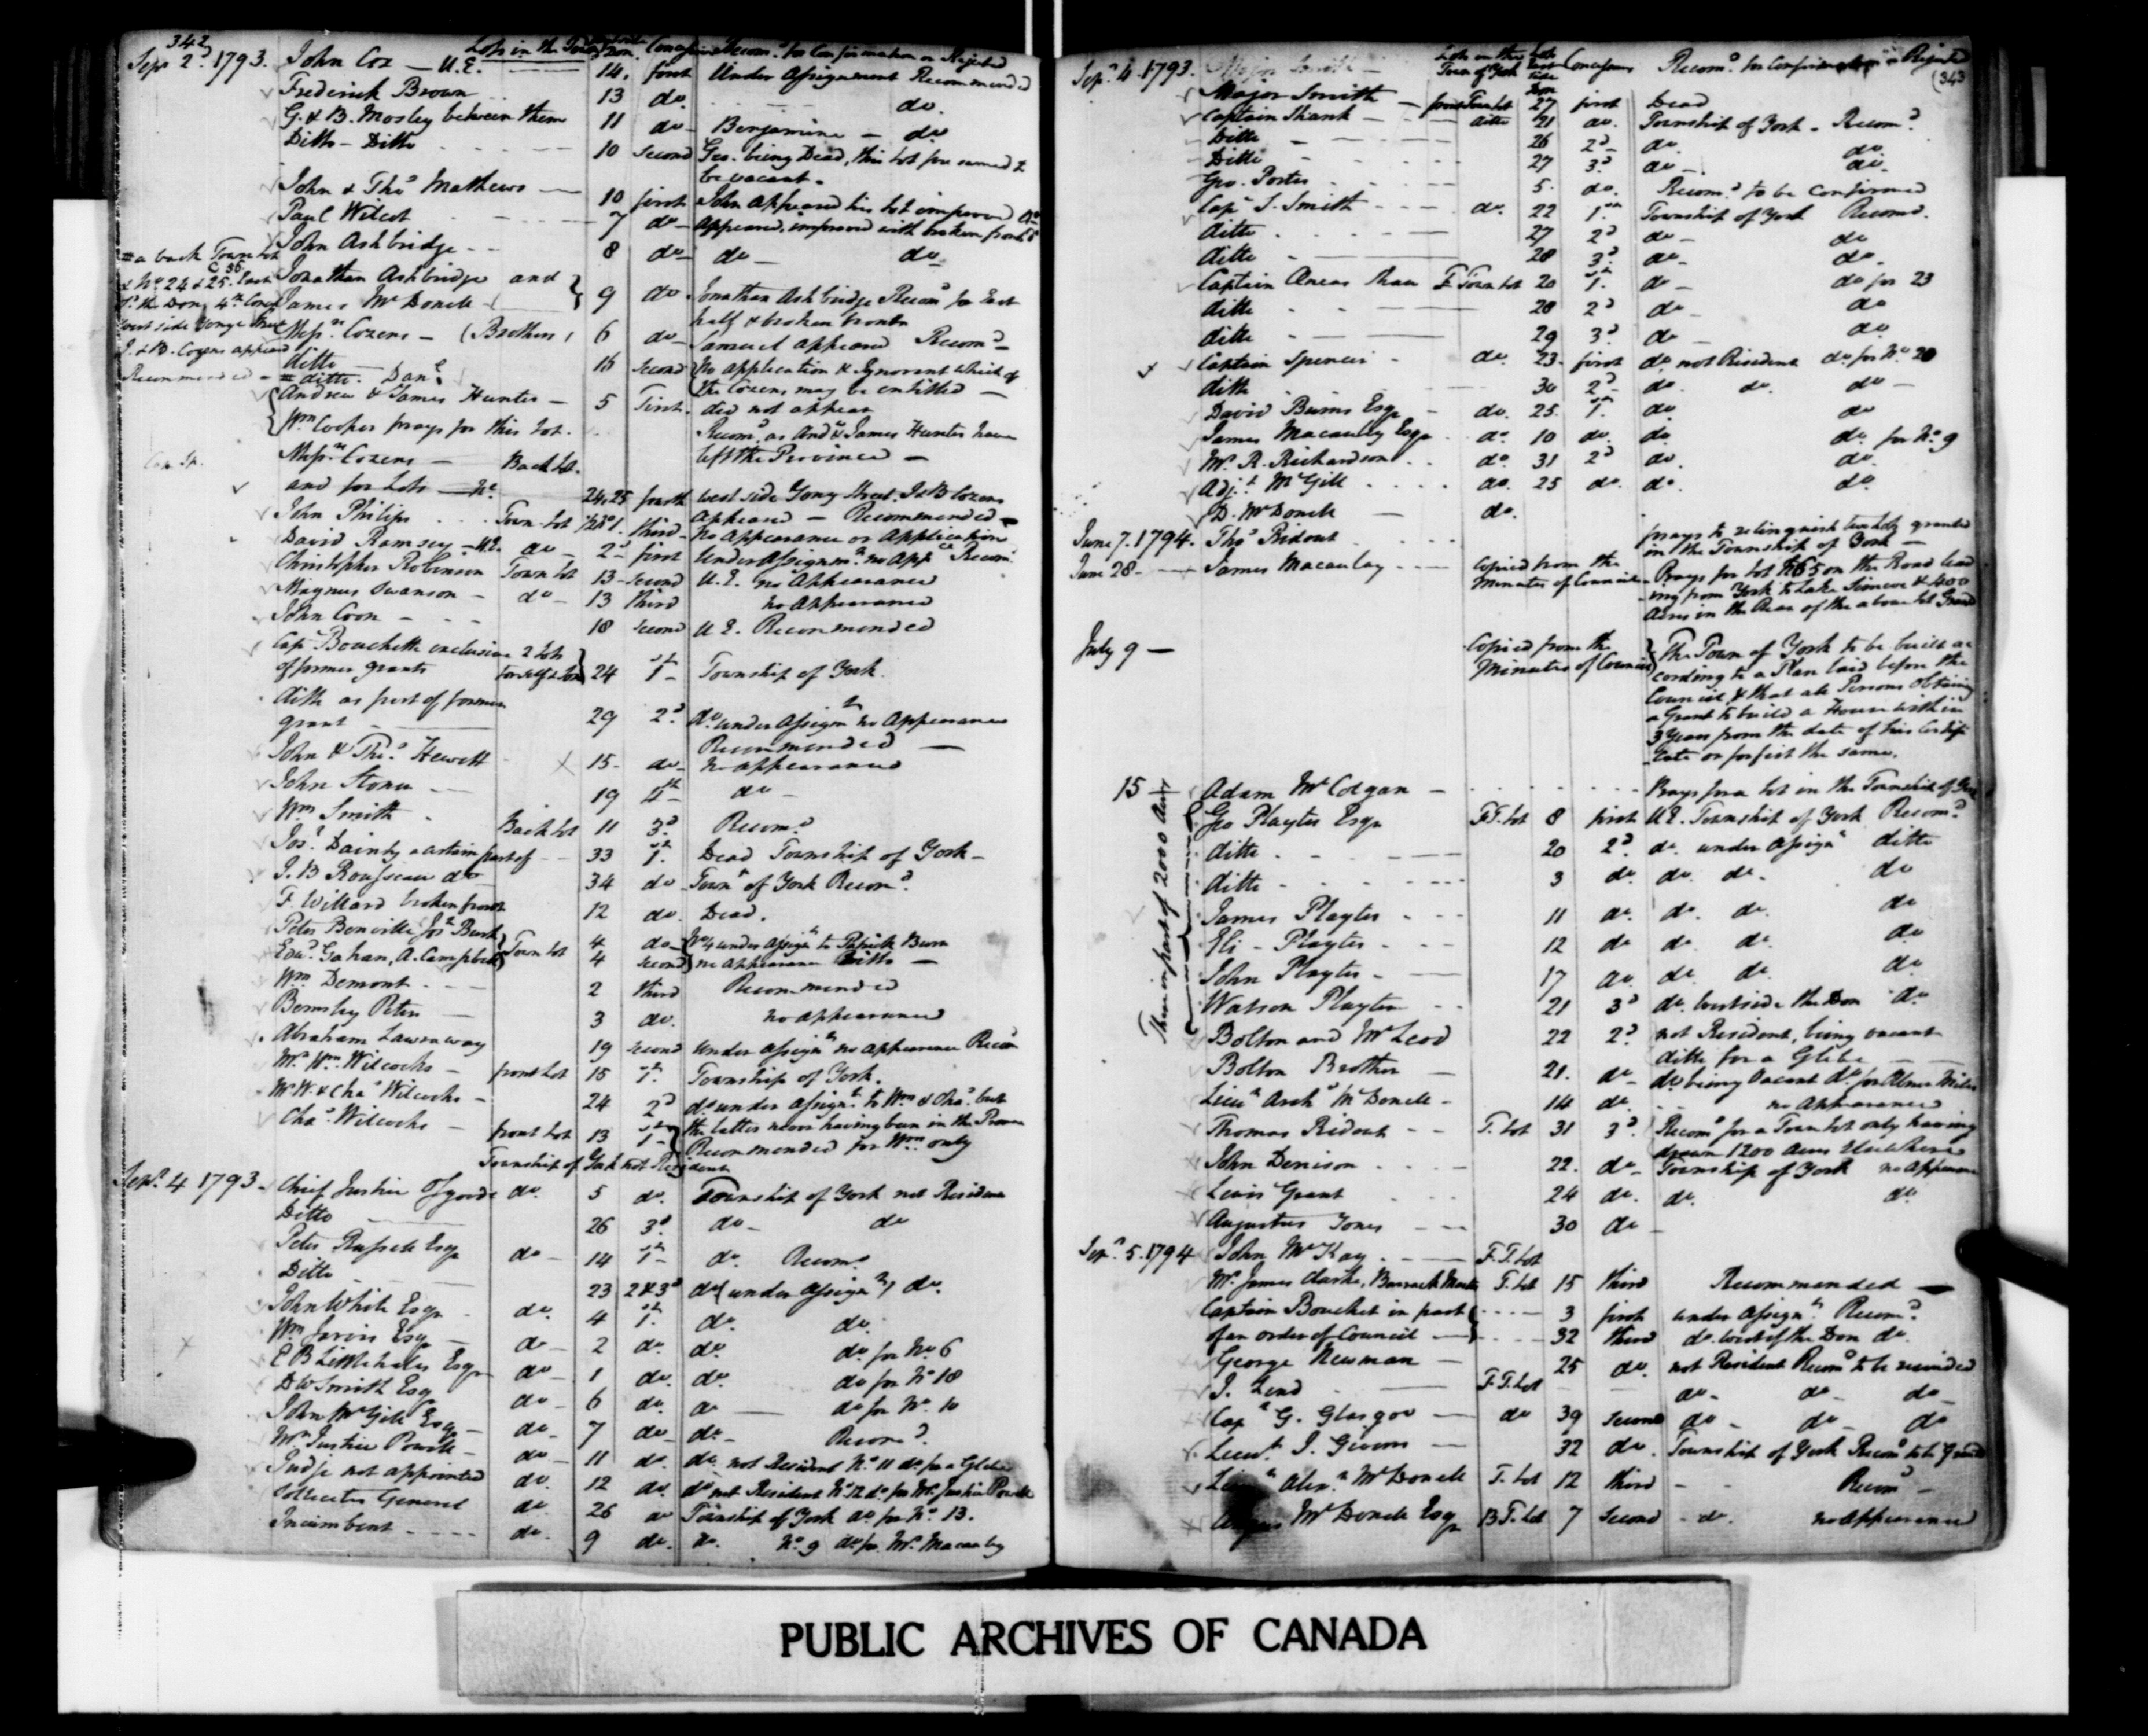 342
Sepr 2d 1793. John Cox — U.E. 14. first Under Assignment Recommended
Frederick Brown 13 do. do.
G. & B. Mosley between them 11 do - Benjamine - do
Ditto - Ditto 10 Second Geo. being Dead, this lot
be vacant.
John & Thos Mathews — 10 first John appeared his lot improved
Paul Wilcot 7 do - Appeared, improved with broken front
John Ashbridge - - 8 do do - do
= a back Town lot
& No 24 & 25. East
Jonathan Ashbridge and
James McDonell 9 do Jonathan Ashbridge Recomd for East
half & broken front
West side Yonge Street
Messrs Cozens - (Brothers) 6 do - Samuel appeared Recomd -
J. & B. Cozens appeared
Recommended
ditto 16 Second No application & Ignorant which of
= ditto. Danl. the Cozens may be entitled —
Andrew & James Hunter - 5 First. did not appear
Wm Cooper prays for this lot. Recomd as Andw & James Hunter have
left the Province —
Messrs Cozens — Back lot.
and for Lots — No 24, 25 fourth west side Yong Street. J & B Cozens
appeared — Recommended -
John Philips Town lot third - No Appearance or Application
David Ramsey - U.E. do - 2d first Under Assignmt no appce Recomd
Christopher Robinson Town lot 13 - Second U.E. no Appearance
Magnus Swanson - do - 13 third no Appearance
John Coon - 18 Second U.E. Recommended
Capt Bouchette exclusive 2 lots
of former grants for self & Son 24 1st Township of York.
ditto as part of former
grant 29 2d do under Assignmt no Appearance
Recommended —
John & Thos Hewett X 15 - do - no appearance
John Stoner - 19 4th do -
Wm Smith Back lot 11 3d Recomd
Jos. Dainty a certain part of - 33 1st Dead Township of York -
J. B Rousseau do 34 do - Town of York Recomd
F. Willard broken front 12 do. Dead.
Peter Bonville Jos Burk
Edwd Gahan, A. Campbell Town lot 4 do - No 4 under Assignt to Patrick Burn
4 Second no appearance Ditto —
Wm Demont - 2 third Recommended
Bemsley Peters 3 do. no appearance
Abraham Lawraway 19 Second under Assignt no appearance Recom
Mr Wm Willcocks - front lot 15 1st Township of York.
Mr W. & Chas Willcocks - 24 2d do under Assignt to Wm & Chas. but
the latter never having been in the Province
Chas. Willcocks - front lot 13 1st Recommended for Wm only
Township of York not Resident
Sepr. 4 1793 - Chief Justice Osgoode do. 5 do. Township of York not Resident
Ditto 26 3d do - do
Peter Russell Esqr do - 14 1st do. Recomd
Ditto 23 2 & 3d do (under Assignt) do.
John White Esqr do. 4 1st do. do.
Wm Jarvis Esqr do - 2 do. do. do for No 6
E B Littlehales Esqr do 1 do. do. do for No 18
D W Smith Esq do - 6 do. do — do for No. 10
John McGill Esqr do - 7 do - do - Recomd.
Mr Justice Powell - do - 11 do. do. not Resident No 11 do. for a Glebe
Judge not appointed do. 12 do. do not Resident No 12 do. for Mr. Justice Powell
Solicitor General do. 26 do Township of York do. for No. 13.
Incumbent - - - do. 9 do. do. No. 9 do for Mr. Macaulay
343
Sepr 4. 1793. Lots in the Town of York Concession Recomd for Confirmation or Rejected
Major Smith - front Town lot 27 first Dead
Captain Shank - - - ditto 21 do. Township of York - Recomd.
Ditto - 26 2d - do. do
Ditto - 27 3d do - do.
Geo. Porter 5. do. Recomd to be Confirmed
Capt S. Smith - - - do. 22 1st Township of York Recomd.
ditto 27 2d do - do
ditto 28 3d do - do.
Captain Æneas Shaw F Town lot 20 1st do - do for 23
ditto 28 2d do - do
ditto 29 3d do - do.
Captain Spencer - do. 23. first do. not Resident do for No 20
ditto 30 2d do. do. do -
David Burns Esqr - do. 25. 1st do do
James Macaulley Esqr do. 10 do. do. do. for No. 9
Mr. R. Richardson do. 31 2d do. do.
Adjt McGill do. 25 do. do. do.
D. McDonell - do.
June 7. 1794. Thos Ridout prays to relinquish two lots granted
in the Township of York -
June 28 - James Macaulay - - - Copied from the
Minutes of Council - Prays for lot on the Road lead
ing from York to Lake Simcoe & 400
Acres in the Rear of the above lot Grand
July 9 - Copied from the
Minutes of Council The Town of York to be built ac
cording to a Plan laid before the
Council, & that all Persons obtaining
a Grant to build a House within
3 Years from the date of his Certifi
cate or forfeit the same.
15 - Adam McColgan - Prays for a lot in the Township of
There in part of 2000 Acres
Geo Playter Esqr F T. lot 8 first U.E. Township of York Recomd
ditto 20 2d. do. under Assignt ditto
ditto 3 do. do. do. do
James Playter - - - 11 do. do. do. do
Eli - Playter - - - 12 do do. do. do
John Playter - 17 do. do. do. do
Watson Playter - - 21 3d do. west side the Don do.
Bolton and McLeod 22 2d not Resident, being vacant
ditto for a Glebe
Bolton Brother - 21. do - do being vacant do. for Abner Miles
Lieut Archd McDonell - 14 do. no Appearance
Thomas Ridout - - T. lot 31 3d. Recomd for a Town lot only having
drawn 1200 Acres Elsewhere
John Denison 22. do - Township of York no Appearance
Lewis Grant 24 do. do. do.
Augustus Jones 30 do -
Sepr. 5. 1794 John McKay F. T. lot
Mr. James Clarke, Barrack Master T. lot 15 third Recommended -
Captain Bouchet in part 3 first under Assignt Recomd.
of an order of Council 32 third do. west of the Don do.
George Newman - 25 do. not Resident Recomd to be rescinded
J. Lend F. T. lot do - do - do -
Capt G. Glasgow - do 39 Second do - do - do
Lieut. J. Givens 32 do. Township of York Recomd to be Granted
Lieut Alexr McDonell T. lot 12 third Recomd -
Angus McDonell Esqr B T. lot 7 Second - do. no appearance
PUBLIC ARCHIVES OF CANADA